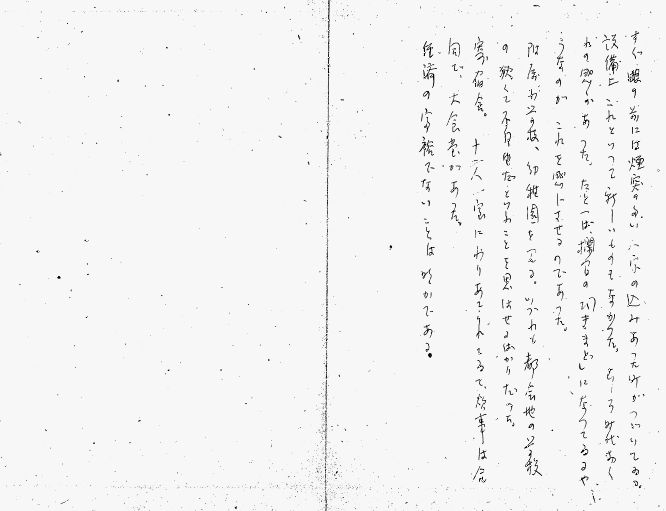 すぐ眼の前には煙突の多い人家の込みあった町がつゞいてゐる。
設備上これといつて新しいものもなかつた。むしろ時代おく
れの感があつた。たとへば、欄間の ひきまど」になつてゐるや
うなのが これを感じさせるのであつた。
附属小学校、幼稚園を見る。いづれも都会地の学校
の狭くて不自由だといふことを思はせるばかりだつた。
寄宿舎。 十一人一室にわりあてられてゐるて、炊事は合
同で、大食堂がある。
経済の富裕でないことは明かである。